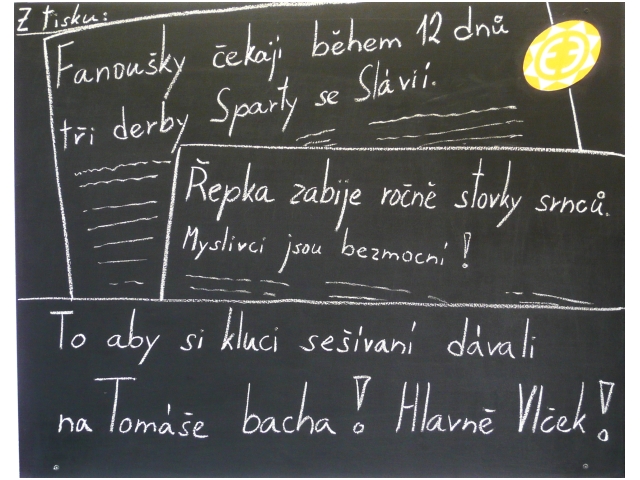 Z tisku:
Fanoušky čekají během 12 dnů
tři derby Sparty se Slávií.
Řepka zabije ročně stovky srnců.
Myslivci jsou bezmocní!
To aby si kluci sešívaní dávali
na Tomáše bacha! Hlavně Vlček!